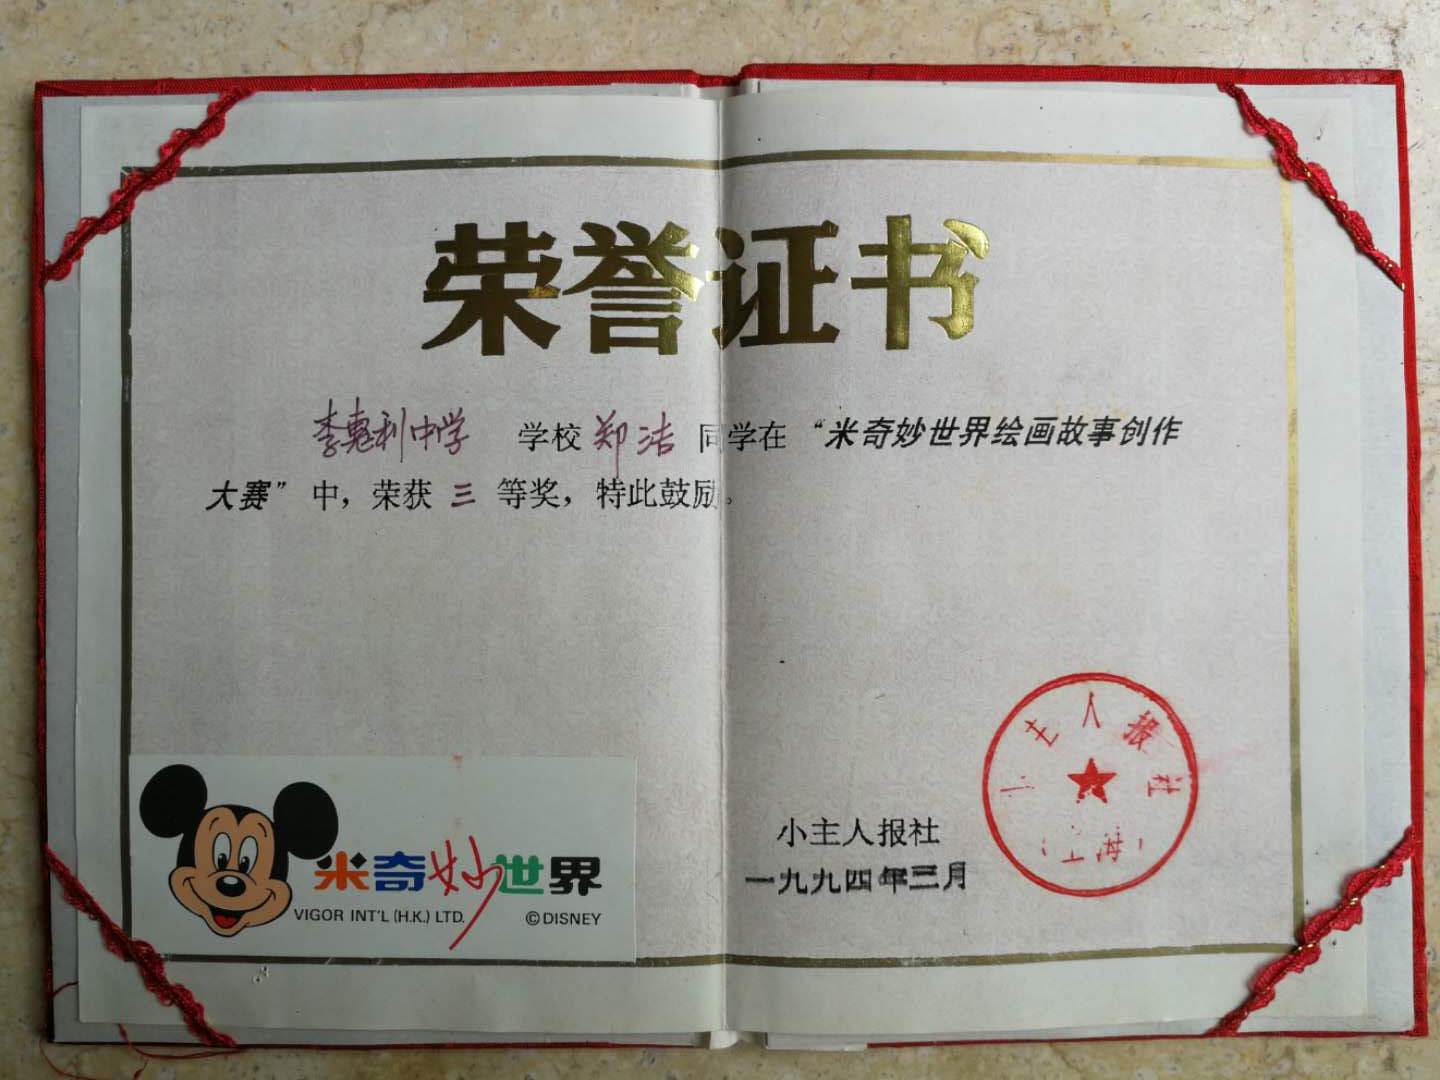 荣誉证书
李惠利中学 学校 郑洁 同学在 “米奇妙世界绘画故事创作
大赛” 中，荣获 三 等奖，特此鼓励。
米奇妙世界
VIGOR INT'L (H.K.) LTD. ©DISNEY
小主人报社
一九九四年三月
小主人报社
(上海)